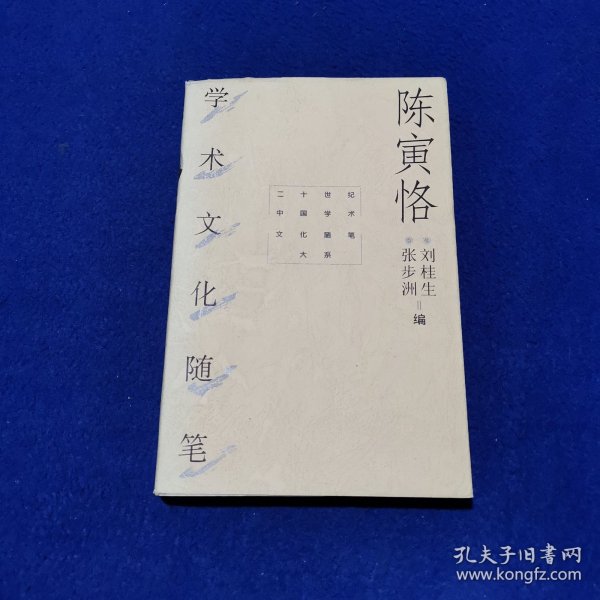 陈寅恪
刘桂生
张步洲
编
二十世纪
中国学术
文化随笔
大系
学术文化随笔
孔夫子旧书网
www.kongfz.com